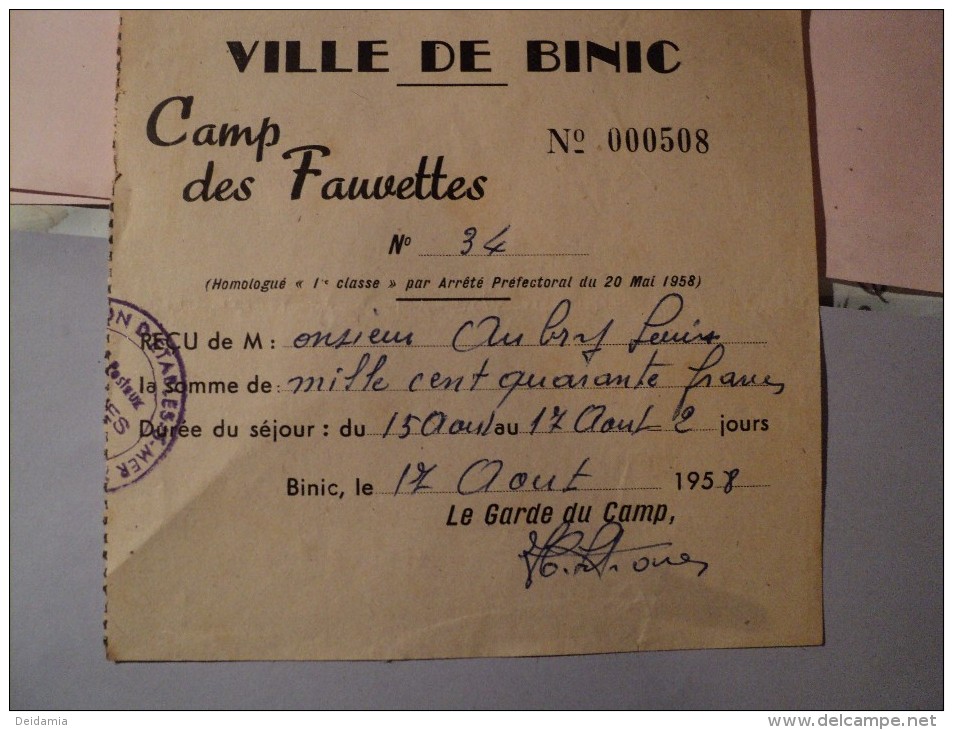 VILLE DE BINIC
Camp
des Fauvettes
Nº 000508
Nº 34
(Homologué « 1re classe » par Arrêté Préfectoral du 20 Mai 1958)
REÇU de M : onsieur Aubry Louis
la somme de : mille cent quarante francs
Durée du séjour : du 15 Aout au 17 Aout 2 jours
Binic, le 17 Aout 1958
Le Garde du Camp,
ON D'ETABLES-S-MER
Postaux
ES
Deidamia
www.delcampe.net